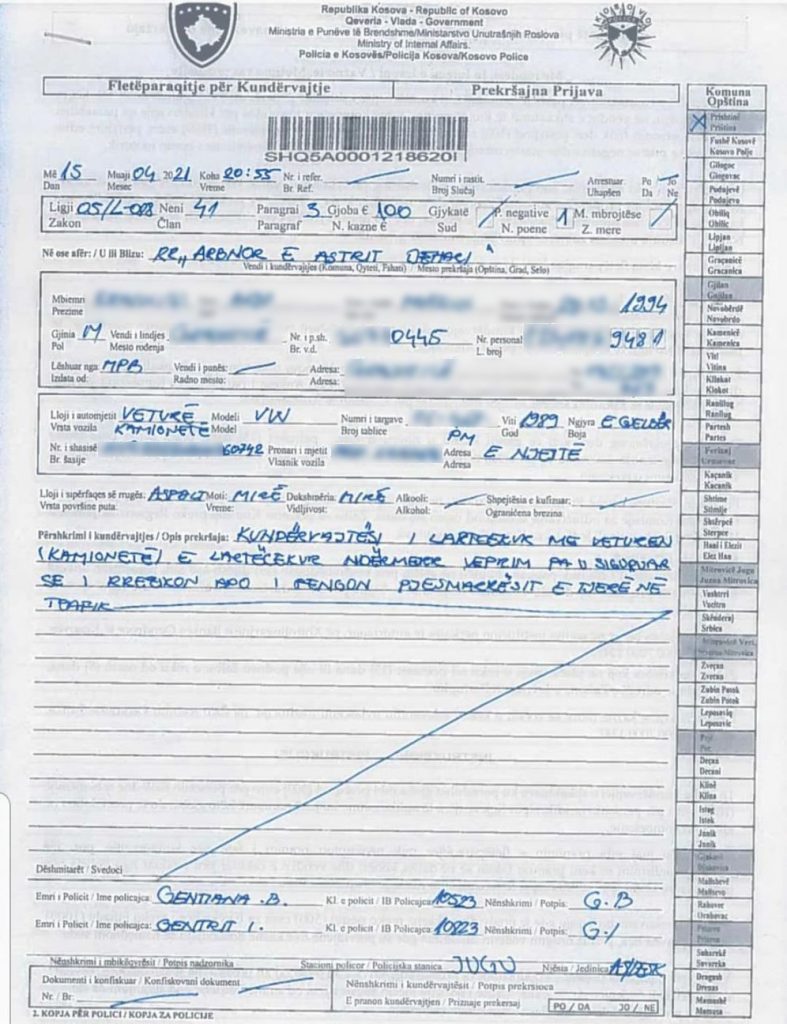 Republika Kosova - Republic of Kosovo
Qeveria - Vlada - Government
Ministria e Punëve të Brendshme/Ministarstvo Unutrašnjih Poslova
Ministry of Internal Affairs.
Policia e Kosovës/Policija Kosova/Kosovo Police
Fletëparaqitje për Kundërvajtje Prekršajna Prijava
SHQ5A0001218620I
Më 15 Muaji 04 2021 Koha 20:55 Nr. i refer. Numri i rastit. Arrestuar Po Jo
Dan Mesec Vreme Br. Ref. Broj Slučaj Uhapšen Da / Ne
Ligji 05/L-088 Neni 41 Paragrai 3 Gjoba € 100 Gjykatë P. negative 1 M. mbrojtëse
Zakon Član Paragraf N. kazne € Sud N. poene Z. mere
Në ose afër: / U ili Blizu: RR,, ARBNOR E ASTRIT DEHARI"
Vendi i kundërvajtjes (Komuna, Qyteti, Fshati) / Mesto prekršaja (Opština, Grad, Selo)
Mbiemri 1994
Prezime
Gjinia M Vendi i lindjes Nr. i p.sh. 0445 Nr. personal 9481
Pol Mesto rođenja Br. v.d. L. broj
Lëshuar nga: MPB Vendi i punës: Adresa:
Izdata od: Radno mesto: Adresa:
Lloji i automjetit VETURË Modeli VW Numri i targave Viti 1989 Ngjyra E GJELBËR
Vrsta vozila KAMIONETË Model Broj tablice PM God Boja
Nr. i shasisë 60742 Pronari i mjetit Adresa E NJEJTË
Br. šasije Vlasnik vozila Adresa
Lloji i sipërfaqes së rrugës: ASFALT Moti: MIRË Dukshmëria: MIRË Alkooli: Shpejtësia e kufizuar:
Vrsta površine puta: Vreme: Vidljivost: Alkohol: Ograničena brezina:
Përshkrimi i kundërvajtjes / Opis prekršaja: KUNDËRVAJTËSI I LARTCEKUR ME VETUREN
(KAMIONETË) E LARTËCEKUR NDËRMERR VEPRIM PA U SIGURUAR
SE I RREZIKON APO I PENGON PJESMARRËSIT E TJERË NË
TRAFIK
Dëshmitarët / Svedoci
Emri i Policit / Ime policajca: GENTIANA .B. Kl. e policit / IB Policajca: 10523 Nënshkrimi / Potpis: G.B
Emri i Policit / Ime policajca: GENTRIT I. Kl. e policit / IB Policajca: 10823 Nënshkrimi / Potpis: G.I
Nënshkrimi i mbikëqyrësit / Potpis nadzornika Stacioni policor / Policijska stanica JUGU Njësia / Jedinica
Dokumenti i konfiskuar / Konfiskovani dokument Nënshkrimi i kundërvajtësit / Potpis prekrsioca
Nr. / Br. E pranon kundërvajtjen / Priznaje prekersaj PO / DA JO / NE
2. KOPJA PËR POLICI / KOPJA ZA POLICIJE
Komuna
Opština
Prishtinë
Priština
Fushë Kosovë
Kosovo Polje
Gllogoc
Glogovac
Podujevë
Podujevo
Obiliq
Obilic
Lipjan
Lipljan
Graçanicë
Gracanica
Gjilan
Gnjilan
Novobërdë
Novobrdo
Kamenicë
Kamenica
Viti
Vitina
Kllokot
Klokot
Ranillug
Ranilug
Partesh
Partes
Ferizaj
Urosevac
Kaçanik
Kacanik
Shtime
Stimlje
Shtërpcë
Sterpce
Hani i Elezit
Elez Han
Mitrovicë Jugu
Juzna Mitrovica
Vushtrri
Vucitrn
Skënderaj
Srbica
Zveçan
Zvecan
Zubin Potok
Zubin Potok
Leposaviq
Leposavic
Pejë
Pec
Deçan
Decani
Klinë
Klina
Istog
Istok
Junik
Junik
Gjakovë
Djakovica
Malishevë
Malisevo
Rahovec
Orahovac
Prizren
Prizren
Suharekë
Suvareka
Dragash
Drenas
Mamushë
Mamusa